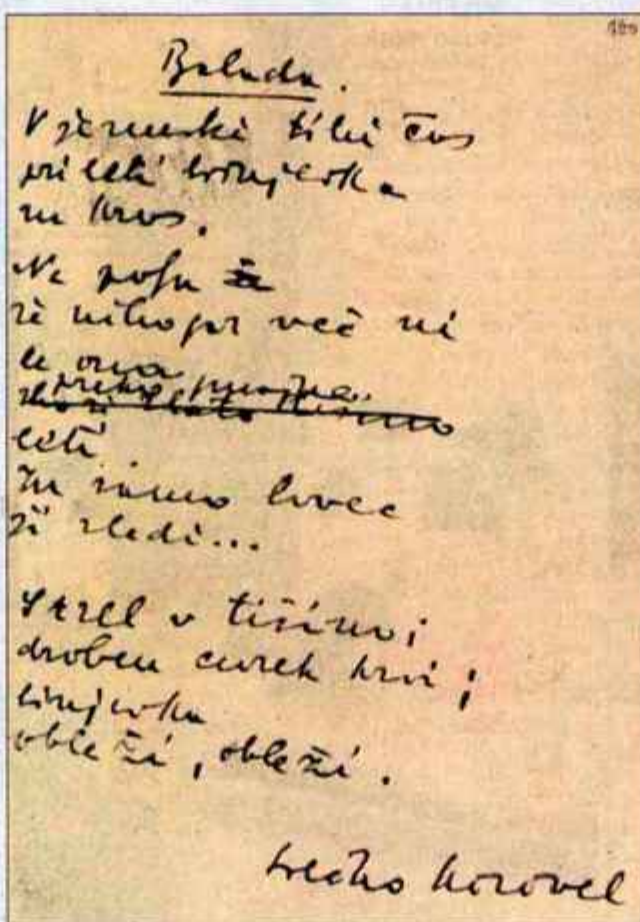 Balada.
V jesenski tihi čas
prileti brinjevka
na Kras.
Na polju že
že nikogar več ni
le ona
preko gmajne
leti
In samo lovec
ji sledi...
Strel v tišino;
droben curek krvi;
brinjevka
obleži, obleži.
Srečko Kosovel